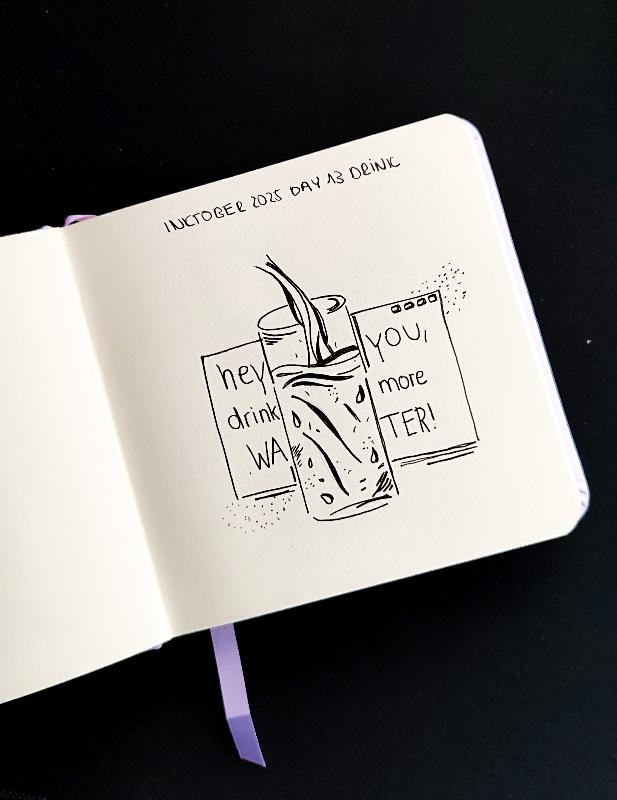 INKTOBER 2025 DAY 13 DRINK
hey YOU,
drink more
WATER!